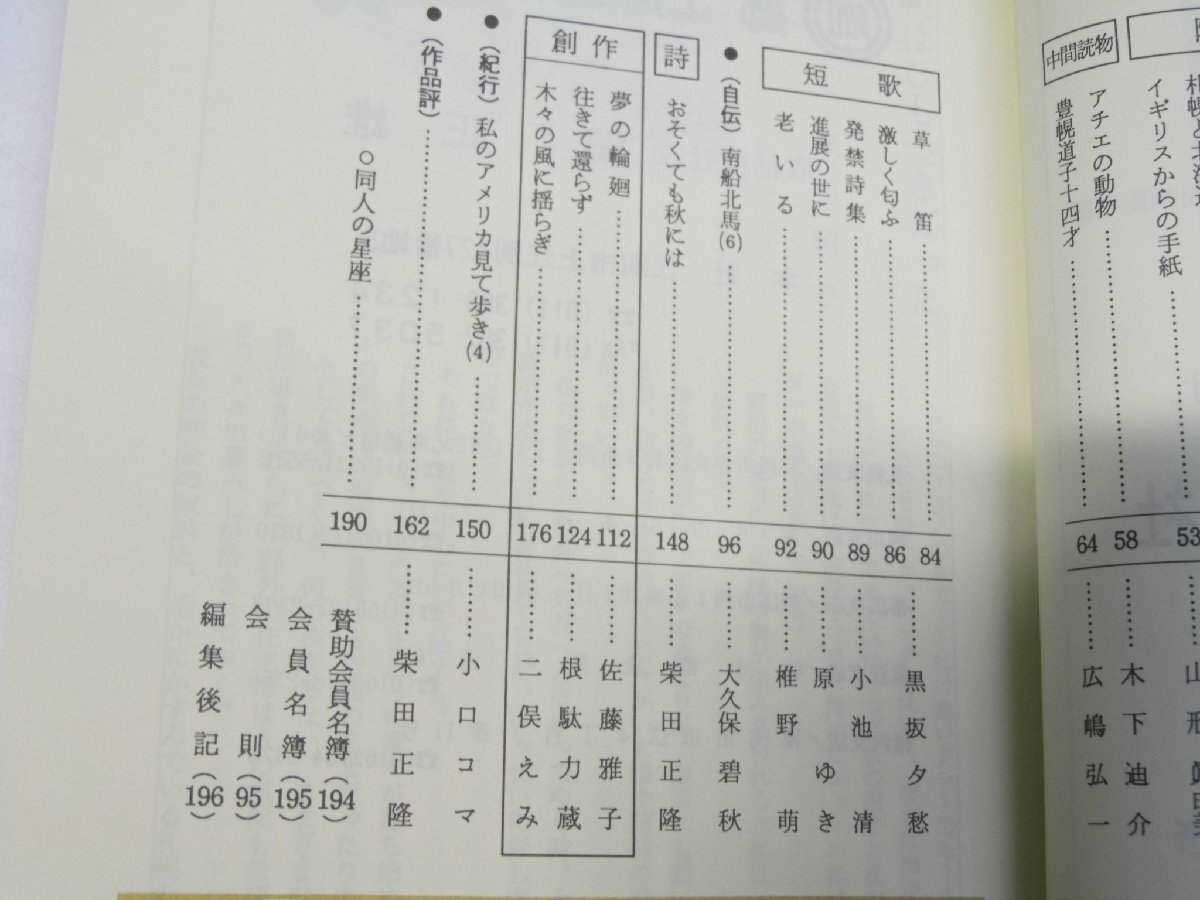 イギリスからの手紙……53……山形
中間読物
アチエの動物……58……木下迪介
豊幌道子十四才……64……広嶋弘一
短歌
草笛……84……黒坂夕愁
激しく匂ふ……86
発禁詩集……89……小池清
進展の世に……90……原ゆき
老いる……92……椎野萌
●(自伝)南船北馬(6)……96……大久保碧秋
詩
おそくても秋には……148……柴田正隆
創作
夢の輪廻……112……佐藤雅子
往きて還らず……124……根駄力蔵
木々の風に揺らぎ……176……二俣えみ
●(紀行)私のアメリカ見て歩き(4)……150……小口コマ
●(作品評)……162……柴田正隆
○同人の星座……190
賛助会員名簿(194)
会員名簿(195)
会則(95)
編集後記(196)